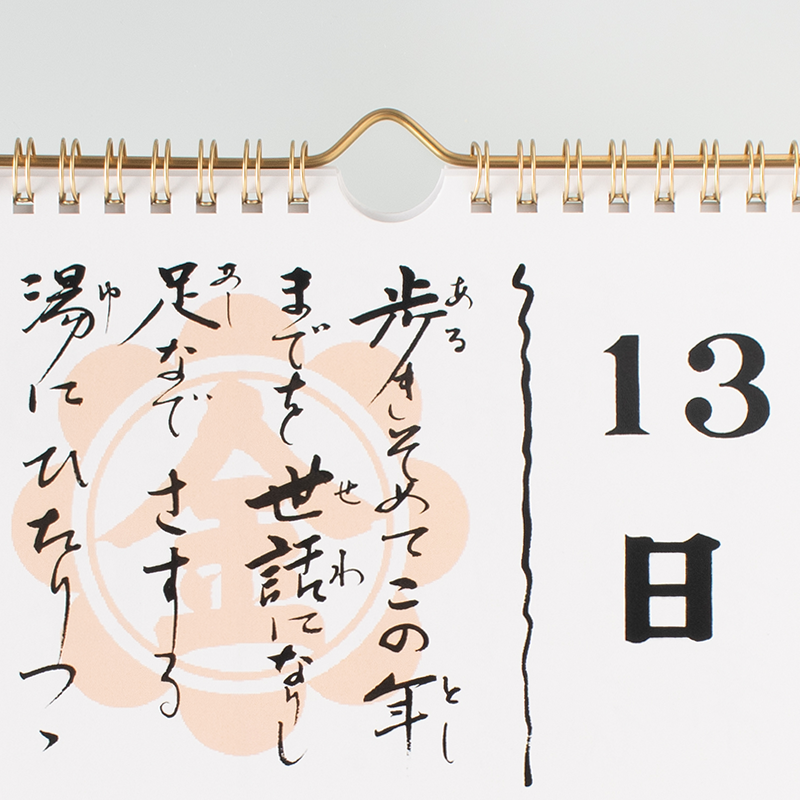 13
日
ある とし
歩きそめてこの年
せわ
までを世話になりし
あし
足なでさする
ゆ
湯にひたりつゝ
金